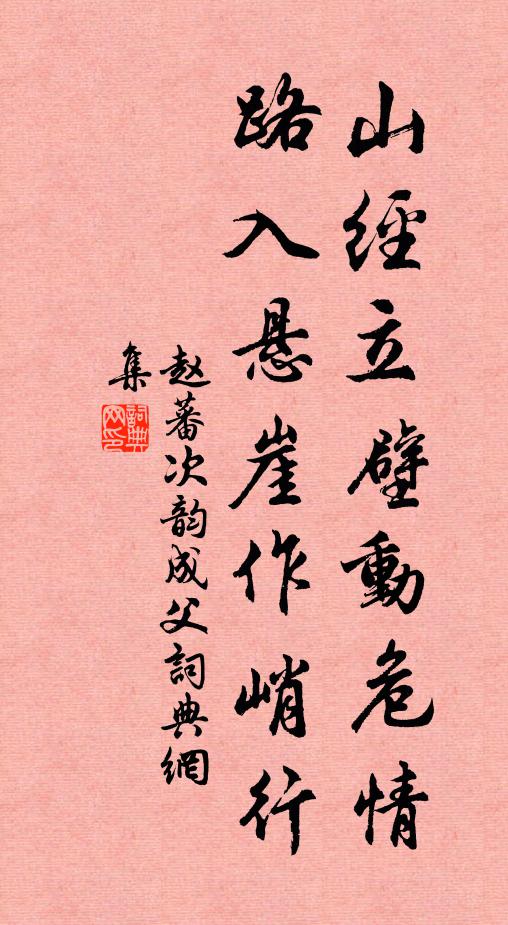 山經立壁動危情
路入悬崖作峭行
赵蕃次韵成父詞典網
集
詞典网印